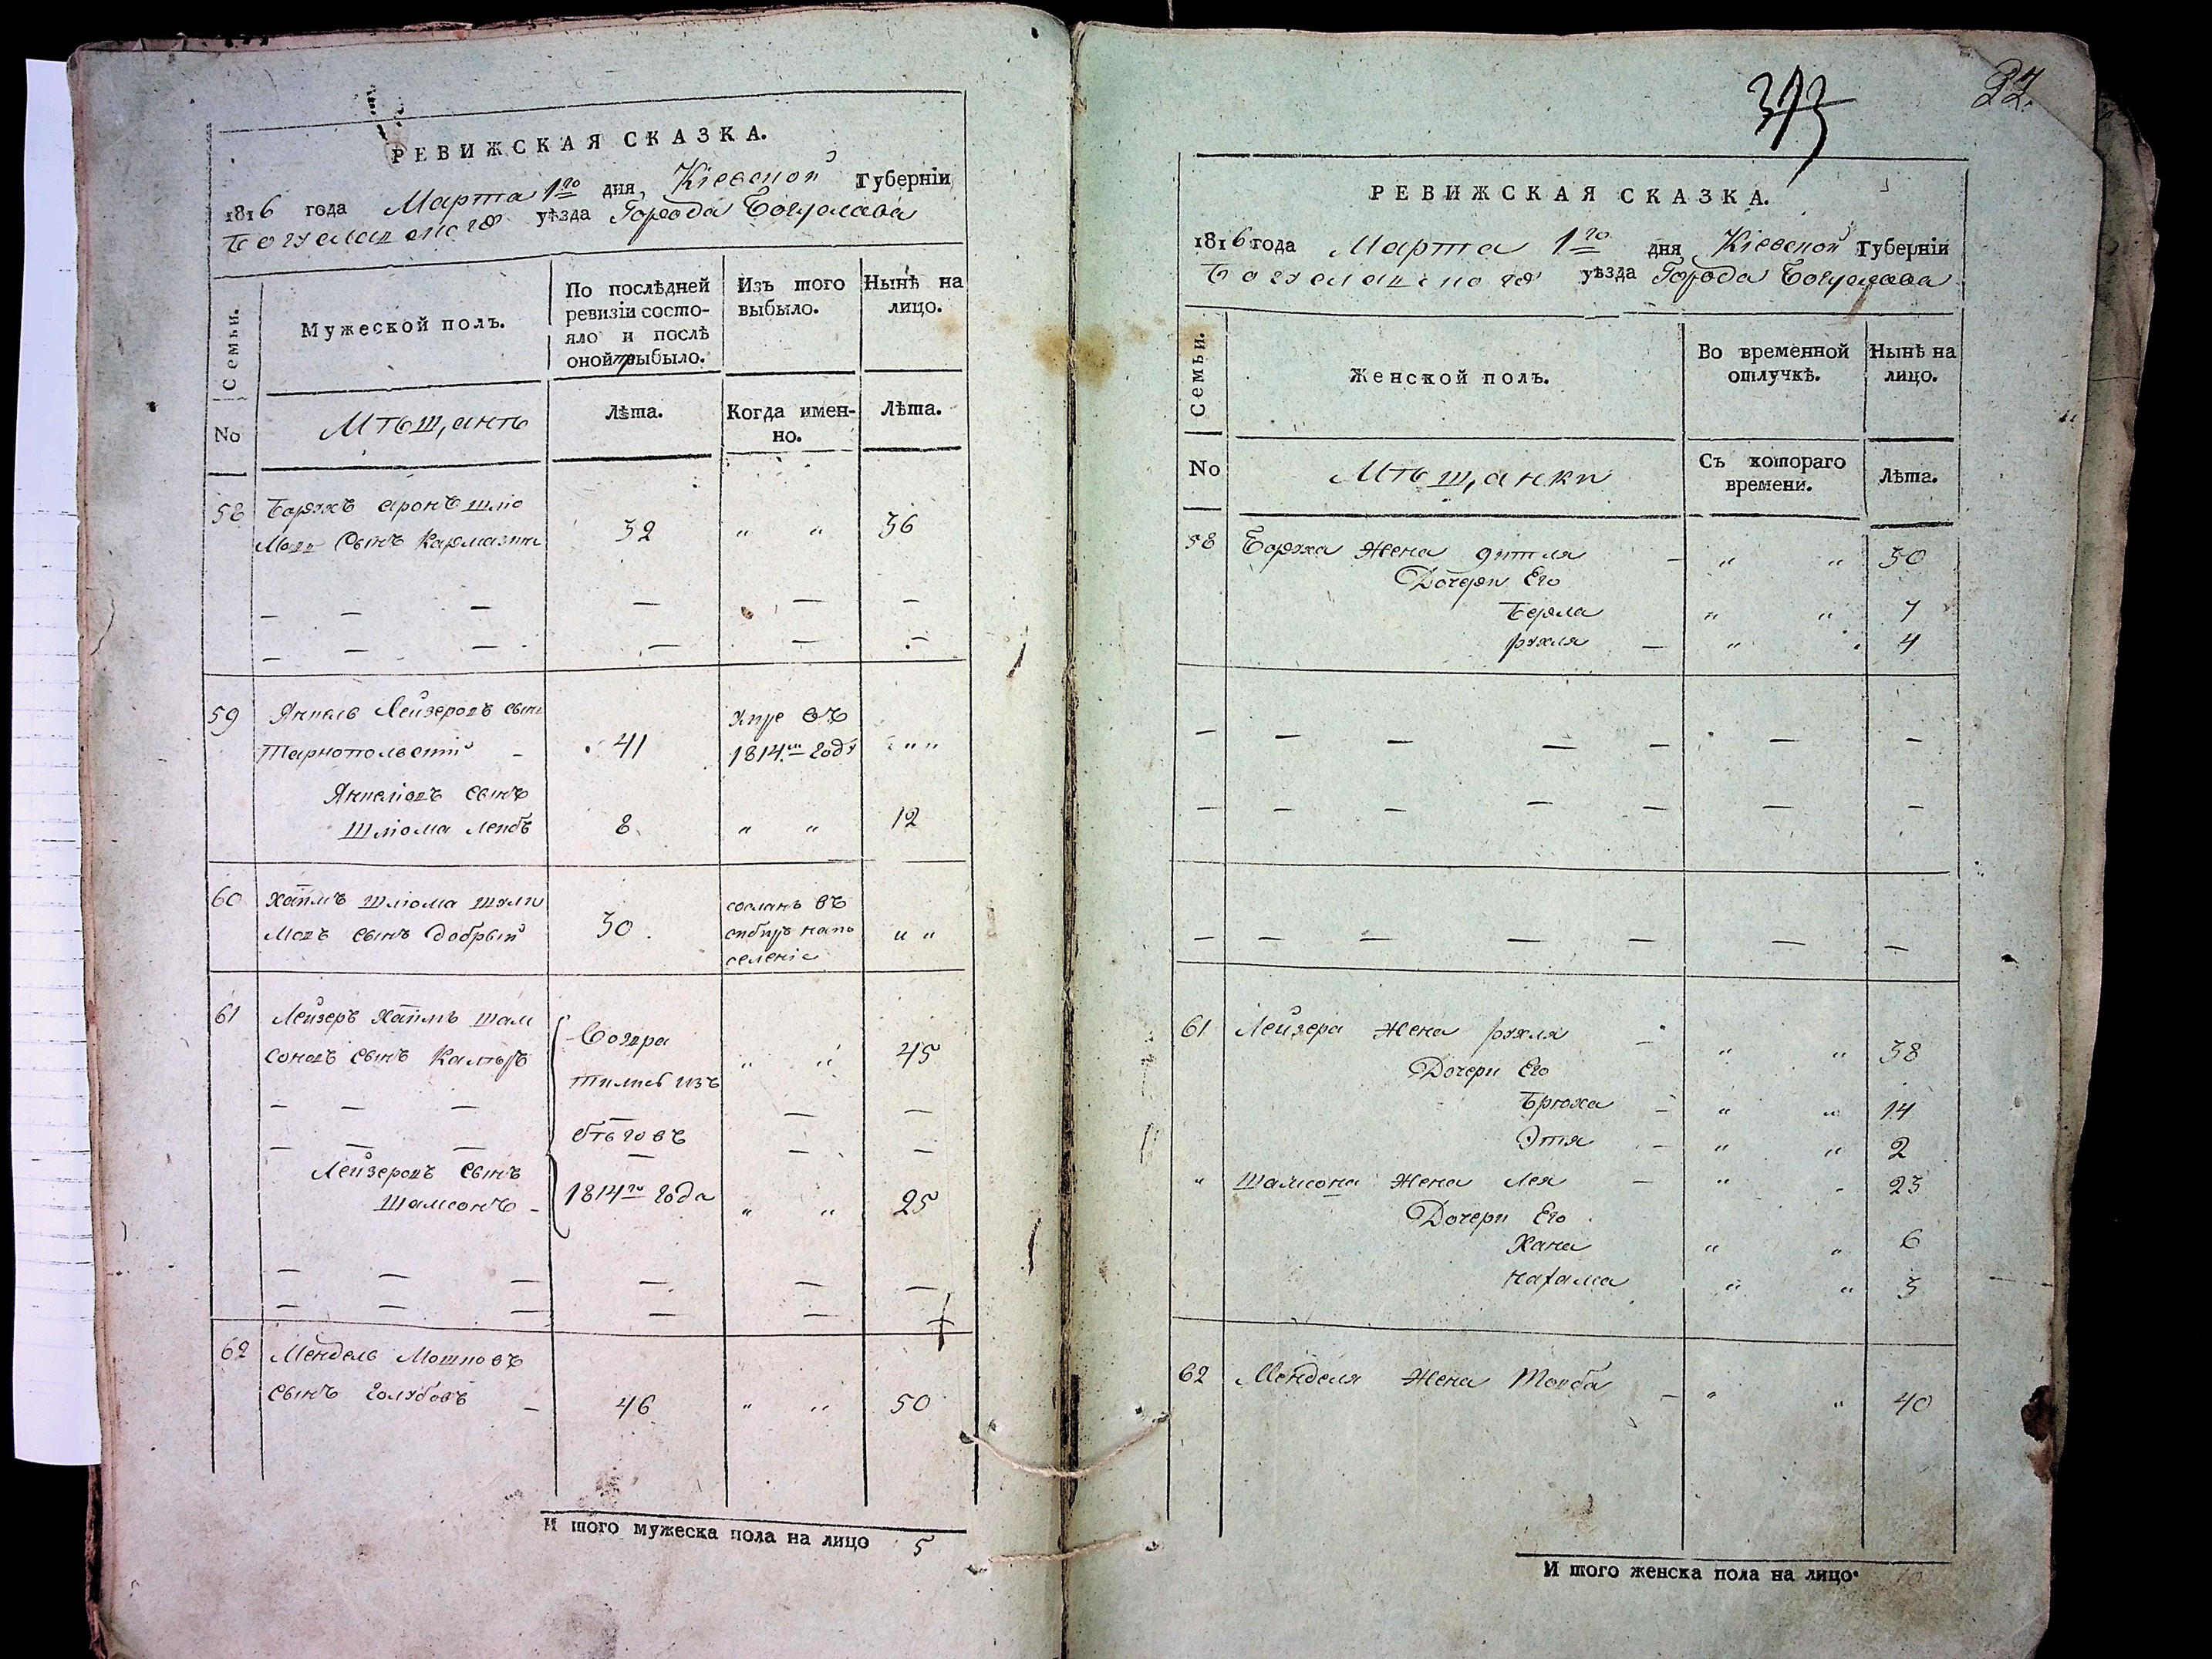 РЕВИЖСКАЯ СКАЗКА.
1816 года Марта 1го дня, Кіевской Губерніи
Богуславского уѣзда Города Богуслава
Семьи.
Мужеской полъ.
По послѣдней ревизіи состо-
яло и послѣ
оной прыбыло.
Изъ того
выбыло.
Нынѣ на
лицо.
No
Мѣщанѣ
Лѣта.
Когда имен-
но.
Лѣта.
58 Борухъ аронъ шліо
мовъ Сынъ Кармазин 32 " " 36
59 Янкель Лейзеровъ сынъ умре въ
Тарнопольскій - 41 1814м годѣ " "
Янкеліовъ сынъ
Шліома лейбъ 8 " " 12
60 хаимъ шліома шулі сосланъ въ
мовъ сынъ добрый 30 сибирь на по " "
селеніе
61 Лейзеръ Хаимъ шам
соновъ сынъ 45
изъ
бѣговъ
Лейзеровъ сынъ
Шамсонъ - 1814го года " " 25
62 Мендель Мошковъ
сынъ голубовъ - 46 " " 50
И того мужеска пола на лицо 5
373
РЕВИЖСКАЯ СКАЗКА.
1816 года Марта 1го дня Кіевской Губерніи
Богуславского уѣзда Города Богуслава
Семьи.
Женской полъ.
Во временной
отлучкѣ.
Нынѣ на
лицо.
No
Мѣщанки
Съ котораго
времени.
Лѣта.
58 Боруха Жена Эйтля - " " 30
Дочери Его
Берла " " 7
рухля - " " 4
61 Лейзера Жена рухля - " " 38
Дочери Его
Брюха - " " 14
Этя - " " 2
" Шамсона Жена Лея - " " 23
Дочери Его
Хана " " 6
Нахама " " 3
62 Менделя Жена Товба - " " 40
И того женска пола на лицо. 10